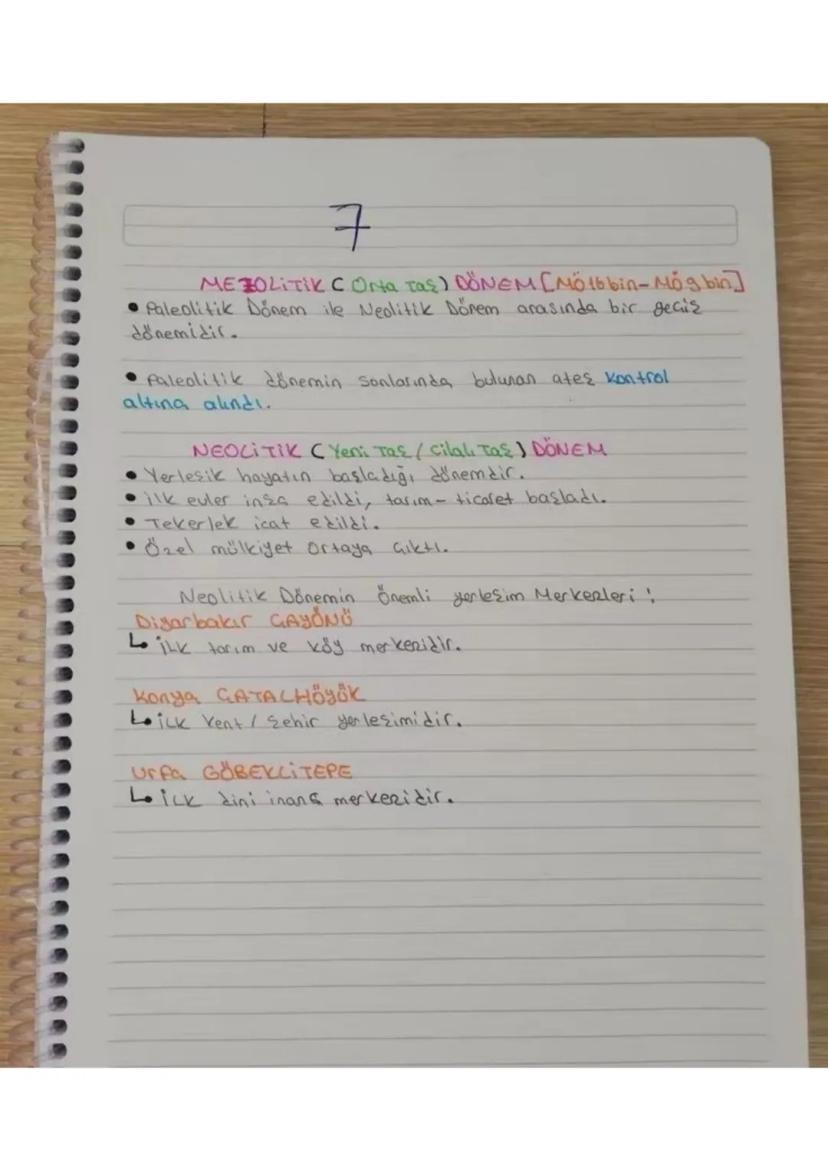 7
MEZOLİTİK (Orta Taş) DÖNEM [MÖ16bin-MÖ9bin]
• Paleolitik Dönem ile Neolitik Dönem arasında bir geçiş
dönemidir.
• Paleolitik dönemin sonlarında bulunan ateş kontrol
altına alındı.
NEOLİTİK (Yeni Taş / Cilalı Taş) DÖNEM
• Yerleşik hayatın başladığı dönemdir.
• İlk evler inşa edildi, tarım-ticaret başladı.
• Tekerlek icat edildi.
• Özel mülkiyet ortaya çıktı.
Neolitik Dönemin Önemli yerleşim Merkezleri:
Diyarbakır ÇAYÖNÜ
↳ İlk tarım ve köy merkezidir.
Konya ÇATALHÖYÖK
↳ İlk kent / şehir yerleşimidir.
Urfa GÖBEKLİTEPE
↳ İlk dini inanç merkezidir.